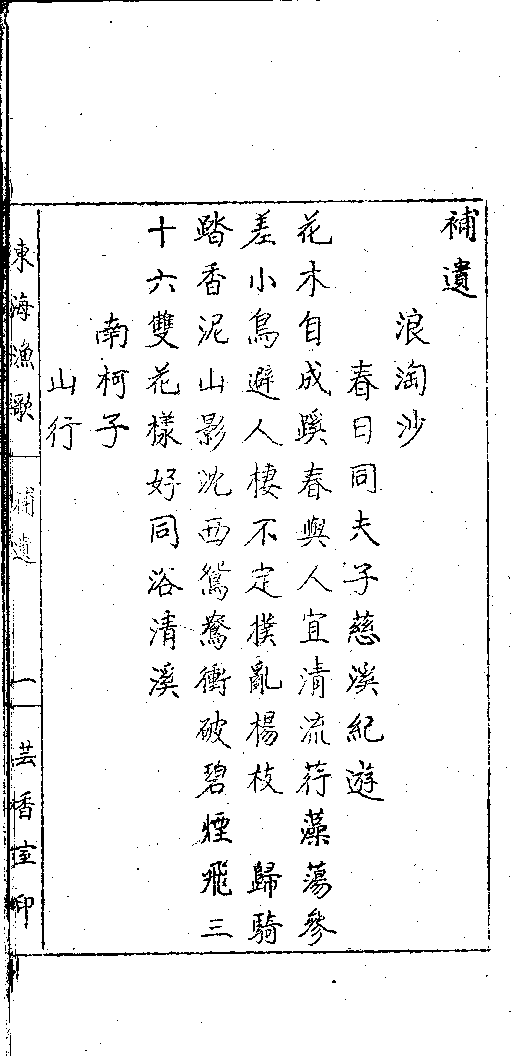 補遺
浪淘沙
春日同夫子慈溪紀遊
花木自成蹊春與人宜清流荇藻蕩參
差小鳥避人棲不定撲亂楊枝　歸騎
踏香泥山影沈西鴛鴦衝破碧煙飛三
十六雙花樣好同浴清溪
南柯子
山行
東海漁歌
補遺
一
芸香室印